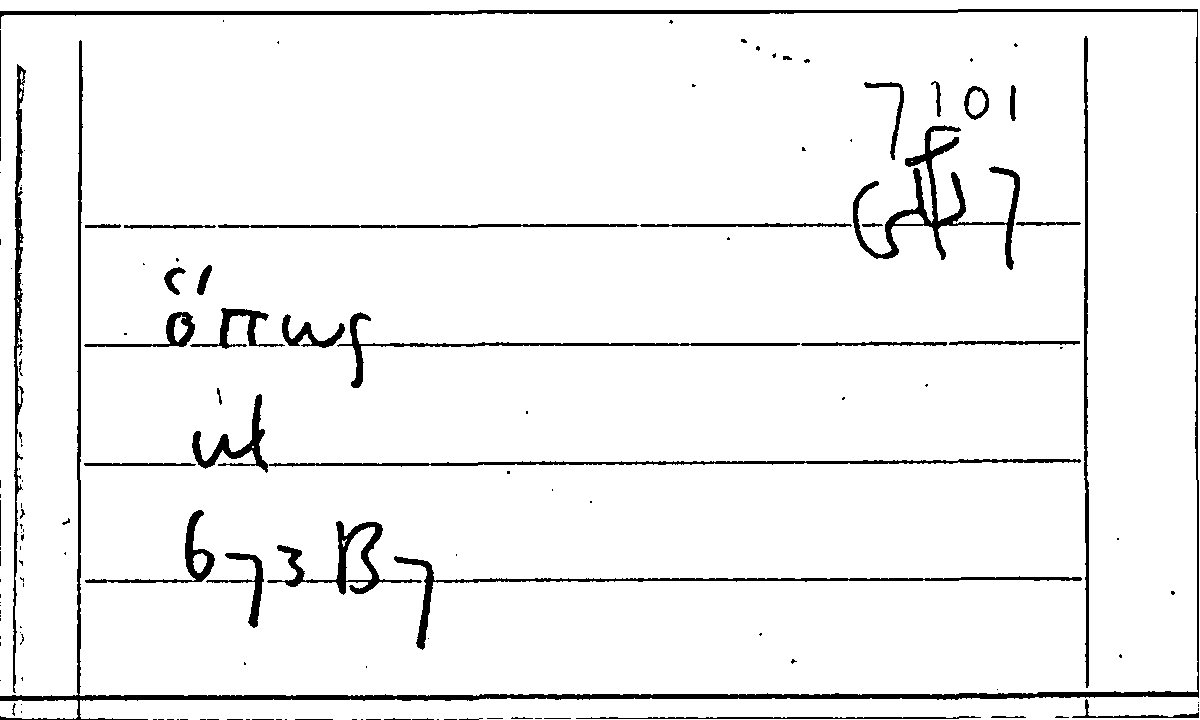 7101
ὅπως
ut
673B7